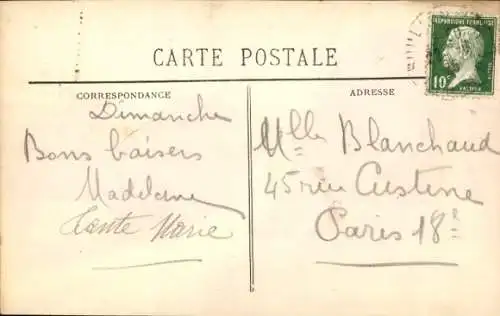 CARTE POSTALE
CORRESPONDANCE
ADRESSE
REPUBLIQUE FRANÇAISE
10c
PASTEUR
Dimanche
Bons baisers
Madeleine
Tante Marie
Mlle Blanchaud
45 rue Custine
Paris 18e